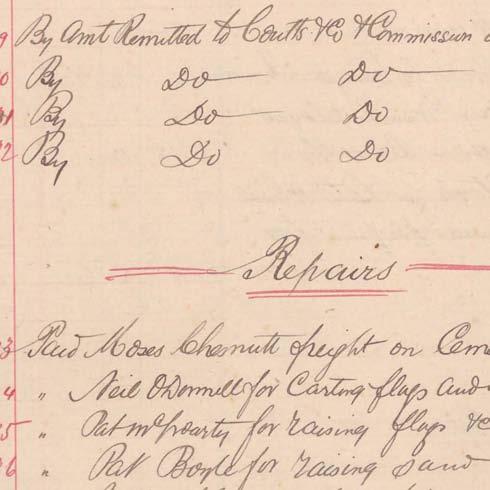 9 By Amt Remitted to Coutts & Co & Commission
0 By Do Do
By Do Do
2 By Do Do
Repairs
3 Paid Moses Chesnutt freight on Cem
4 " Neil O'Donnell for Carting flags and
5 " Pat for raising flags &c
6 " Pat Boyle for raising sand